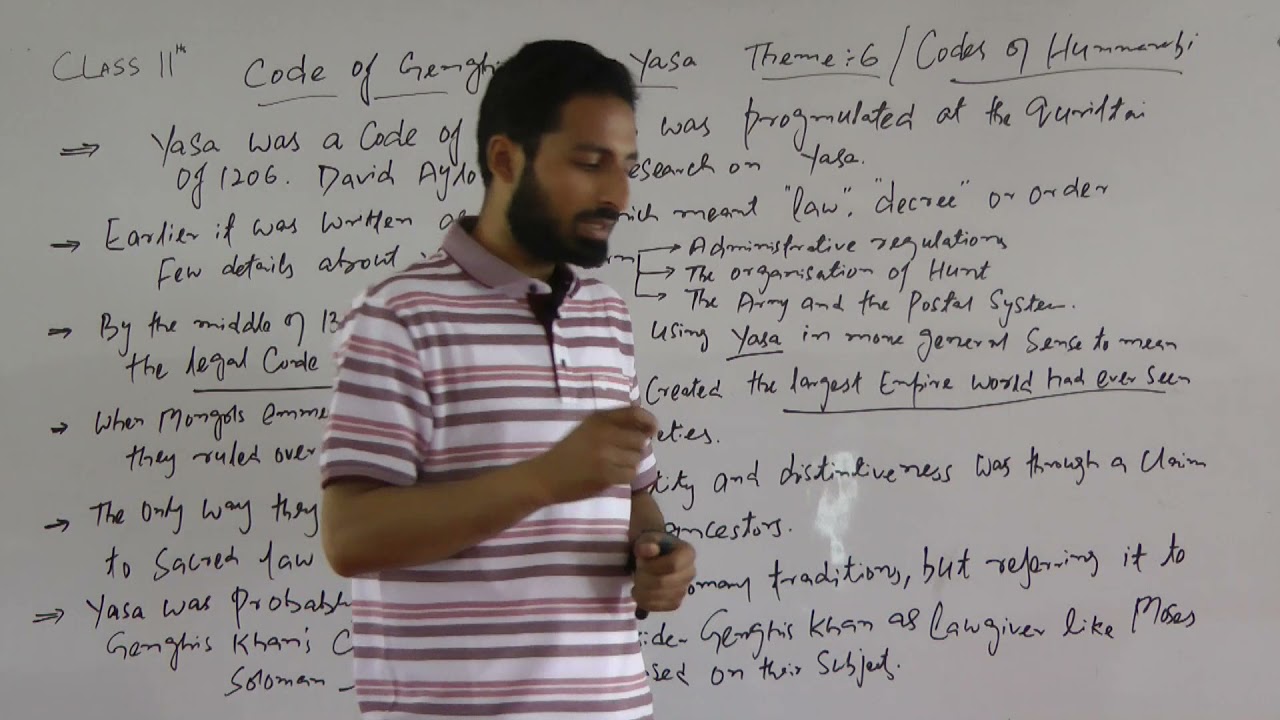 CLASS 11th Code of Genghis Yasa Theme:6 / Codes of Hummarabi
⇒ Yasa was a Code of was progmulated at the Quriltai
Of 1206. David Aylo research on Yasa.
→ Earlier it was written as which meant "law", "decree" or order
Few details about → Administrative regulations
→ The organisation of Hunt
→ The Army and the Postal System.
→ By the middle of 13 using Yasa in more general Sense to mean
the legal Code
→ When Mongols emme Created the largest Empire world had ever seen
they ruled over eties.
→ The only way they tity and distintiveness was through a claim
to Sacred law ancestors.
⇒ Yasa was Probabl omary traditions, but referring it to
Genghis Khan's C ider Genghis Khan as Lawgiver like Moses
Soloman sed on their Subject.